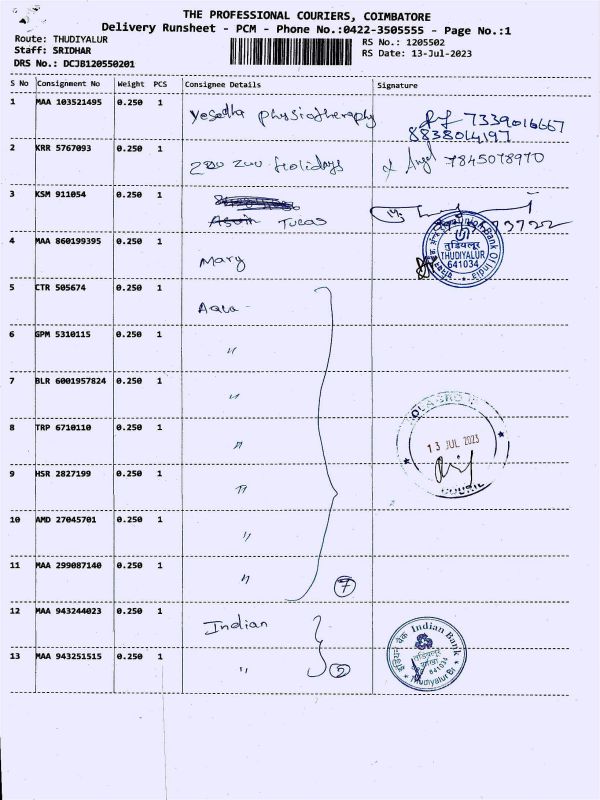 THE PROFESSIONAL COURIERS, COIMBATORE
Delivery Runsheet - PCM - Phone No.:0422-3505555 - Page No.:1
Route: THUDIYALUR
Staff: SRIDHAR
DRS No.: DCJB120550201
RS No.: 1205502
RS Date: 13-Jul-2023
S No Consignment No Weight PCS Consignee Details Signature
1 MAA 103521495 0.250 1 Yesodha physiotheraphy 7339016667
8838014197
2 KRR 5767093 0.250 1 Zoo Zoo Holidays Angel 7845078970
3 KSM 911054 0.250 1 Tucas
4 MAA 860199395 0.250 1 Mary
Bank Of India
तुडियलूर
THUDIYALUR
641034
5 CTR 505674 0.250 1
6 GPM 5310115 0.250 1 "
7 BLR 6001957824 0.250 1 "
8 TRP 6710110 0.250 1 "
13 JUL 2023
9 HSR 2827199 0.250 1 "
10 AMD 27045701 0.250 1 "
11 MAA 299087140 0.250 1 " 7
12 MAA 943244023 0.250 1 Indian
Indian Bank
641034
Thudiyalur Br
13 MAA 943251515 0.250 1 " 2